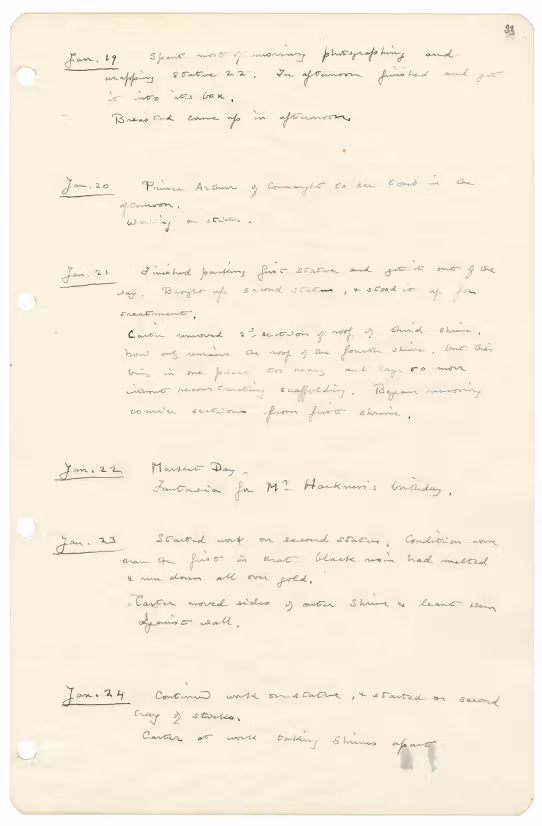 33
Jan. 19 Spent most of morning photographing and
wrapping statue 22. In afternoon finished and got
it into its box.
Breasted came up in afternoon.
Jan. 20 Prince Arthur of Connaught to see tomb in the
afternoon.
Waxing on sticks.
Jan. 21 Finished packing first statue and got it out of the
way. Brought up second statue, & stood it up for
treatment.
Carter removed 2nd section of roof of third shrine.
Now only remains the roof of the fourth shrine, but this
being in one piece too heavy and large to move
without reconstructing scaffolding. Began removing
cornice sections from first shrine.
Jan. 22 Market Day.
Fantasia for Mr Harkness's birthday.
Jan. 23 Started work on second statue. Condition worse
than the first in that black resin had melted
& run down all over gold.
Carter moved sides of outer shrine & leant them
against wall.
Jan. 24 Continued work on statue, & started on second
tray of sticks.
Carter at work taking shrines apart